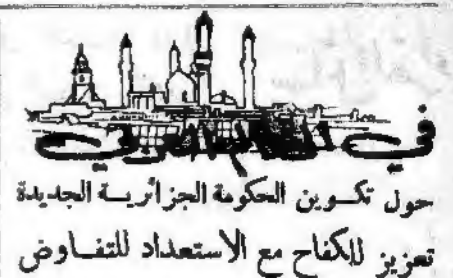 في العالم العربي
حول تكوين الحكومة الجزائرية الجديدة
تعزيز للكفاح مع الاستعداد للتفاوض